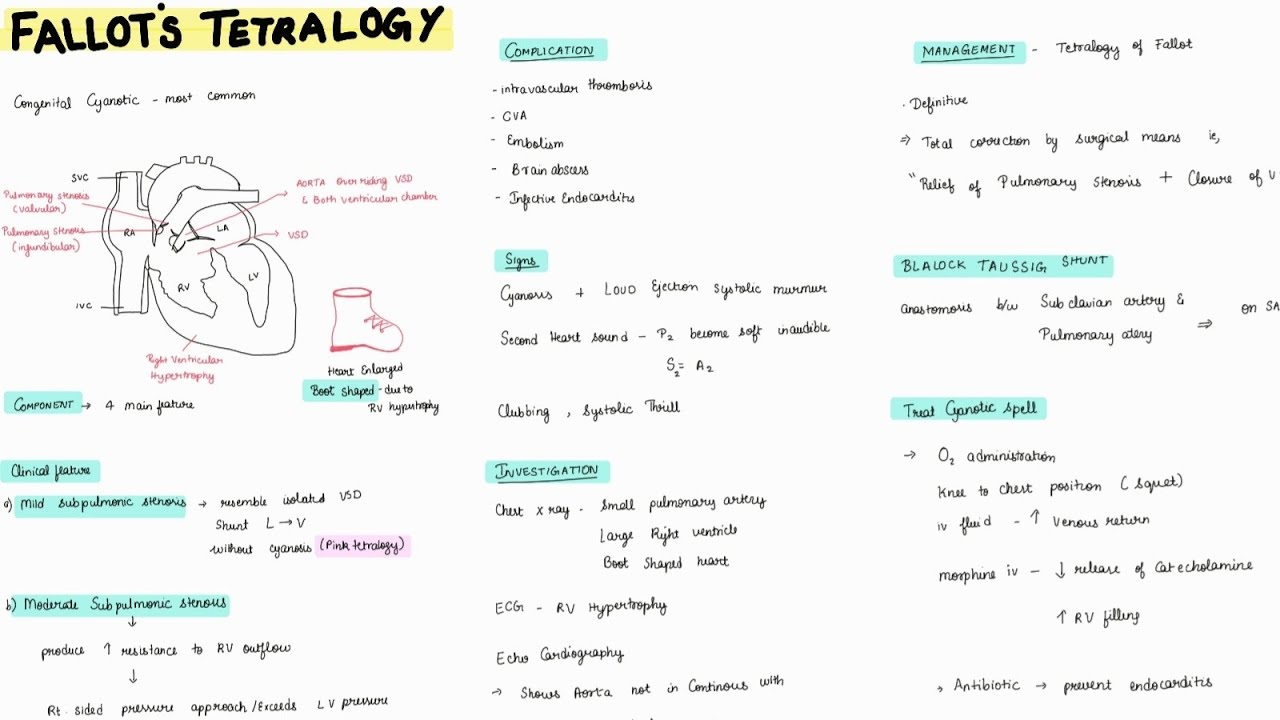 FALLOT'S TETRALOGY
Congenital Cyanotic - most common
SVC
Pulmonary stenosis
(valvular)
Pulmonary stenosis
(infundibular)
RA
LA
RV
LV
IVC
AORTA Over riding VSD
& Both ventricular chamber
VSD
Right Ventricular
Hypertrophy
Heart Enlarged
Boot shaped - due to
RV hypertrophy
COMPONENT → 4 main feature
Clinical feature
a) Mild subpulmonic stenosis → resemble isolated VSD
Shunt L → V
without cyanosis (Pink tetralogy)
b) Moderate Subpulmonic stenosis
↓
produce ↑ resistance to RV outflow
↓
Rt. sided pressure approach/Exceeds LV pressure
COMPLICATION
- intravascular thrombosis
- CVA
- Embolism
- Brain abscess
- Infective Endocarditis
Signs
Cyanosis + LOUD Ejection systolic murmur
Second Heart sound - P2 become soft inaudible
S2 = A2
Clubbing , Systolic Thrill
INVESTIGATION
Chest x ray - Small pulmonary artery
Large Right ventricle
Boot Shaped heart
ECG - RV Hypertrophy
Echo Cardiography
→ Shows Aorta not in Continous with
MANAGEMENT - Tetralogy of Fallot
. Definitive
⇒ Total correction by surgical means ie,
"Relief of Pulmonary Stenosis + Closure of V
BLALOCK TAUSSIG SHUNT
anastomosis b/w Sub clavian artery &
Pulmonary atery ⇒ on SA
Treat Cyanotic spell
→ O2 administration
Knee to chest position (squat)
iv fluid - ↑ venous return
morphine iv - ↓ release of Catecholamine
↑ RV filling
→ Antibiotic → prevent endocarditis